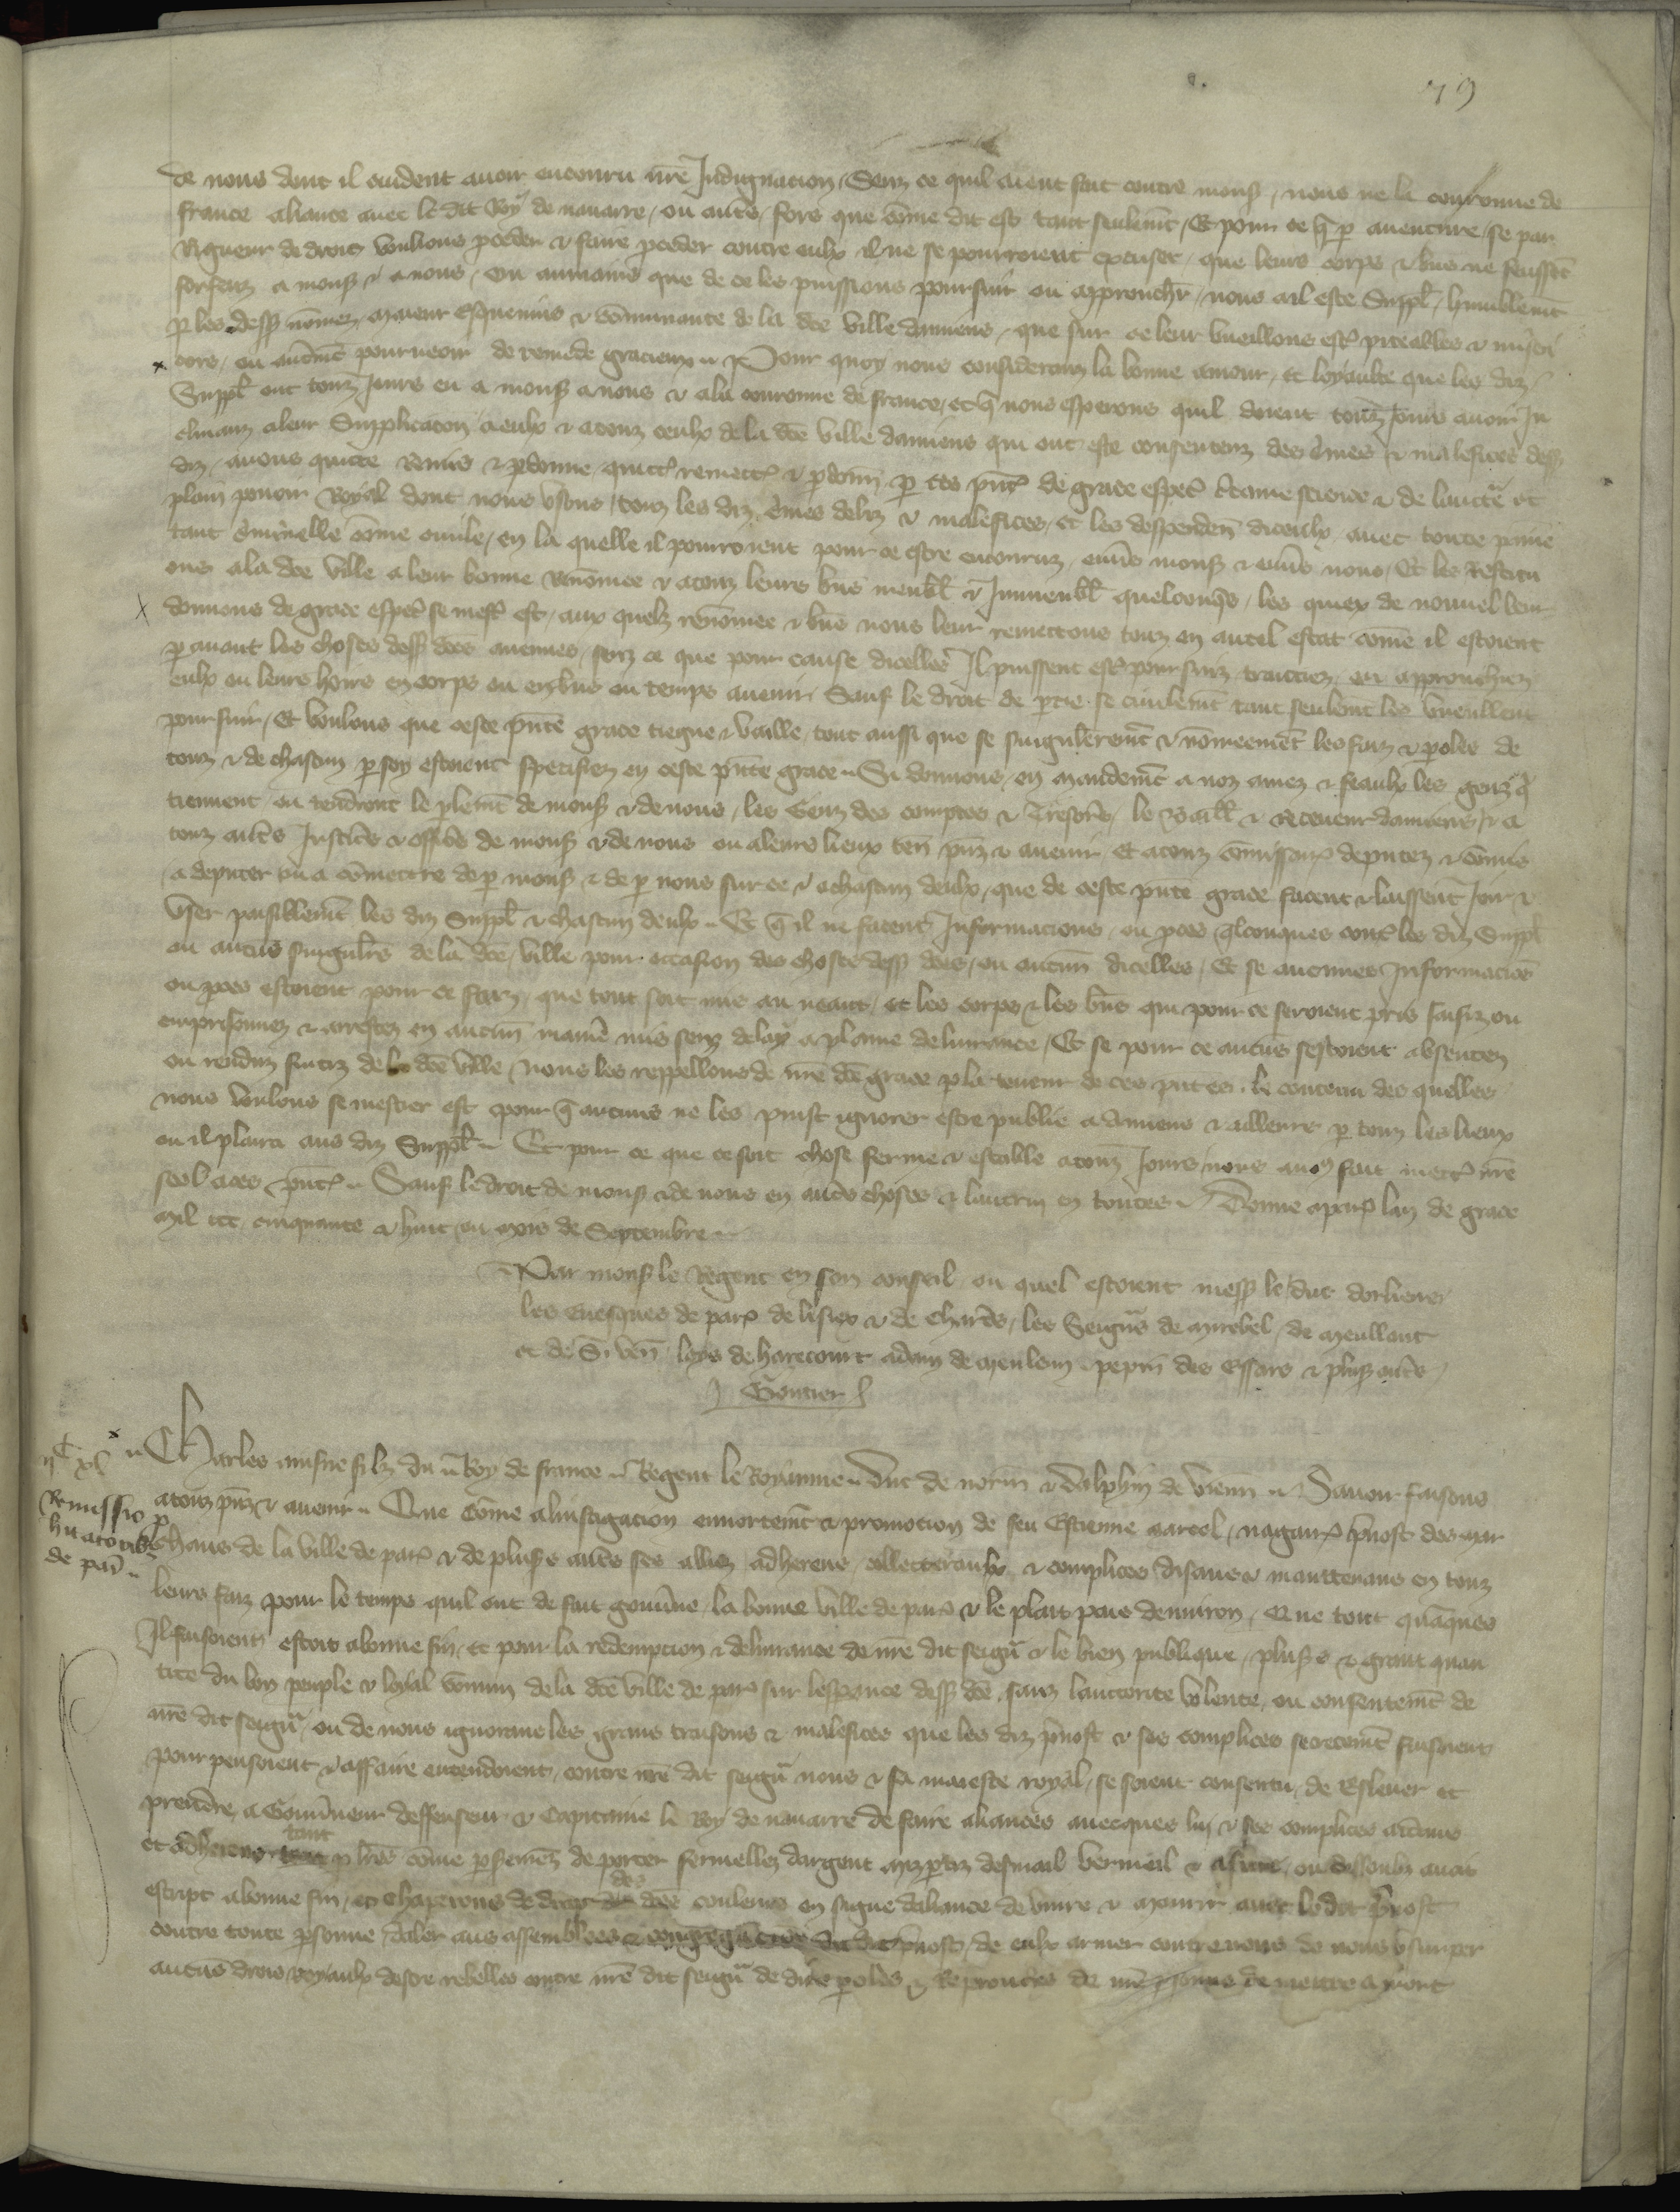 79
de nous dont il cuident avoir encouru nr̃e Indignacion / Senz ce quil aient fait contre mons̃ / nous ne la couronne de
france aliance avec le dit Roy de navarre / ou autr̃s / fors que cõme dit est tant seulemẽt / Et pour ce q̃ p aventure / se par
Rigueur de droit voulions pceder & faire pceder contre eulx il ne se pourroient excuser / que leurs corps & biẽs ne feussẽt
forfaiz a mons̃ & a nous / ou aumains que de ce les puissions poursuir ou approuch̃r / nous ait este Suppl̃ / humblemẽt
p les dess̃ nõmez maieur Esquevins & cõmunaute de la dc̃e ville damiens / que sur ce leur vueillons est̃ piteables & miseri
cors / ou autremẽt pourveoir de remede gracieux .. Pour quoy nous considerans la bonne amour / et loyaulte que les diz
Suppl̃ ont touz Jours eu a mons̃ a nous & a la couronne de france / et q̃ nous esperons quil doient touz Jours avoir In
clinanz a leur Supplicacon a eulx & a touz ceulx de la dc̃e ville damiens qui ont este consentenz des c̃mes & malefices dess̃
diz / avons quitte Remis & pdonne / quitt̃ remett̃ & pdonn̄ p ces pñt̃ de grace esp̃al c̃taine science & de lauct̃e et
plain povoir Royal dont nous usons / touz les diz c̃mes deliz & malefices / et les deppenden̄ diceulx / avec toute paine
tant c̃minelle cõme civile / en la quelle il pourroient pour ce estre encouruz / envs̃ mons̃ & envs̃ nous / Et les Restitu
ons a la dc̃e ville a leur bonne Renõmee & a touz leurs biẽs meubl̃ & Immeubl̃ quelconq̃s / les quiex de nouvel leur
donnons de grace esp̃al se mest̃ est / aux quelz renõmee & biẽs nous leur remettons touz en autel estat cõme il estoient
p avant les choses dess̃ dc̃es avenues / senz ce que pour cause dicelles Il puissent est̃ poursuiz traittiez ou approuchiez
eulx ou leurs hoirs en corps ou en biẽs ou temps avenir Sauf le droit de ptie se civilemẽt tant seulemẽt les vueullent
poursuir / Et voulons que ceste pñte grace tiegne & vaille / tout aussi que se singulieremẽt & nõmeemẽt les faiz & poles de
touz & de chascun p soy estoient specifiez en ceste pñte grace .. Si donnons / en mandemẽt a noz amez & feaulx les genz q̃
tiennent ou tendront le plemẽt de mons̃ & de nous / les Genz des comptes & Tresor̃s / le Baill̃ & Receveur damiens / & a
touz autr̃s Justic̃s & offic̃s de mons̃ & de nous ou a leurs lieux ten̄ pñz & avenir Et a touz cõmissair̃ deputez & cõmis
a deputer ou a cõmettre de p mons̃ & de p nous sur ce & a chascun deulx / que de ceste pñte grace facent & laissent Joir &
user paisiblemẽt les diz Suppl̃ & chascun deulx .. Et q̃ il ne facent Informacions / ou pces q̃lconques cont̃ les diz Suppl̃
ou aucũs singulĩrs de la dc̃e ville pour occasion des choses dess̃ dc̃es / ou aucun̄ dicelles / Et se aucunes Informaciõs
ou pces estoient pour ce faiz / que tout soit mis au neant / et les corps & les biẽs qui pour ce seroient pris saisiz ou
emprisonnez & arrestez en aucun̄ maniẽ mis senz delay a plaine delivrance / Et se pour ce aucũs sestoient absentez
ou renduz fuitiz de la dc̃e ville / nous les rappellons de nr̃e dc̃e grace p la teneur de ces pñtes . le contenu des quelles
nous voulons se mestier est pour q̃ aucuns ne les puist ignorer estre publie a Amiens & ailleurs p touz les lieux
ou il plaira aus diz Suppl̃ .. Et pour ce que ce soit chose ferme & estable a touz Jours nous avõs fait mett̃ nr̃e
seel a ces pñt̃ .. Sauf le droit de mons̃ & de nous en autr̃s choses & lautrui en toutes .. Donne a par̃ lan de grace
Mil ccc cinquante & huit ou mois de Septembre ..
Par mons̃ le Regent en son conseil ou quel estoient mess̃ le duc dorliens
les Evesques de par̃ de lisiex & de Chartr̃s / les Seign̄rs de Mirebel / de Meullent
et de S. Ven̄ / loys de harecourt adam de Meulenn pepin des Essars & plus̃ autr̃s /
Gontier
iiC xl
Remissio p
hitatorib̃
de par̃ ..
.. Charles ainsne filz du Roy de france .. Regent le Royaume .. Duc de norm̄ & Dalphin de vienn̄ .. Savoir faisons
a touz pñz & avenir .. Que cõme a linstigacion ennortemẽt & promocion de feu Estienne Marcel / nagair̃ p̃vost des mar
chans de la ville de par̃ & de plus̃s autr̃s ses aliez adherens / collecteraulx & complices disans & maintenans en touz
leurs faiz pour le temps quil ont de fait gouv̄ne / la bonne ville de par̃ & le plait paus denviron / Que tout quãques
Il faisoient estoit a bonne fin / et pour la redempcion & delivrance de nr̃e dit seign̄r & le bien publique / plus̃s & grant quan
tite du bon peuple & loyal cõmun de la dc̃e ville de par̃ sur lesperance dess̃ dc̃e / sanz lauctorite volente / ou consentemẽt de
nr̃e dit seign̄r / ou de nous ignorans les grans traisons & malefices que les diz p̃vost & ses complices secretemẽt faisoient
pourpensoient & affaire entendoient / contre nr̃e dit seign̄r nous & sa maieste royal / se soient consentu / de Eslever et
prendre a Gouv̄neur deffenseur & Capitaine le Roy de navarre de faire aliances avecques lui & ses complices aidans
et adherens tant p lr̃es cõme p seremẽz de porter fermeilles dargent miptiz desmail vermeil & asuré / ou dessoubz avoit
escript a bonne fin / et Chaperons de drap des dc̃es couleurs en signe daliance de vivre & mourir avec le dit p̃vost
contre toute psonne / daler aus assemblees & congregaciõs du dit p̃vost / de eulx armer contre nous de nous usurper
aucũs drois royaulx destre rebelles contre nr̃e dit seign̄r de dire poles & Reprouches de de mettre a mort